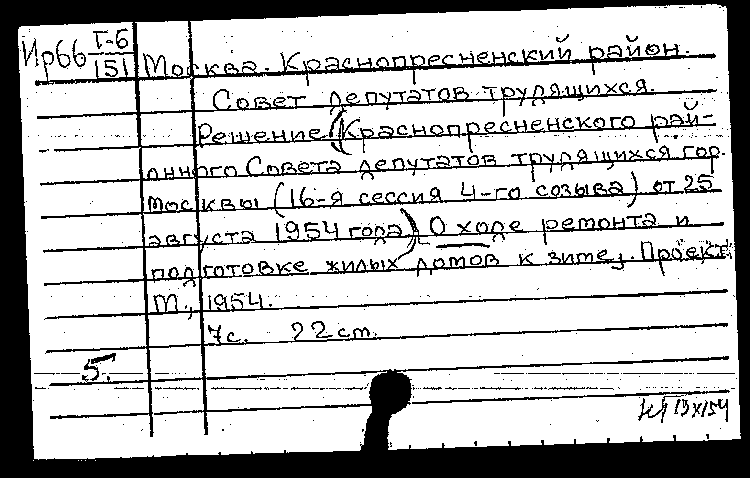 Ир66 Т-6
151 Москва. Краснопресненский район.
Совет депутатов трудящихся.
Решение (Краснопресненского рай-
онного Совета депутатов трудящихся гор.
Москвы (16-я сессия 4-го созыва) от 25
августа 1954 года) О ходе ремонта и
подготовке жилых домов к зиме]. Проект.
М., 1954.
7с. 22 ст.
5.
13 X 154